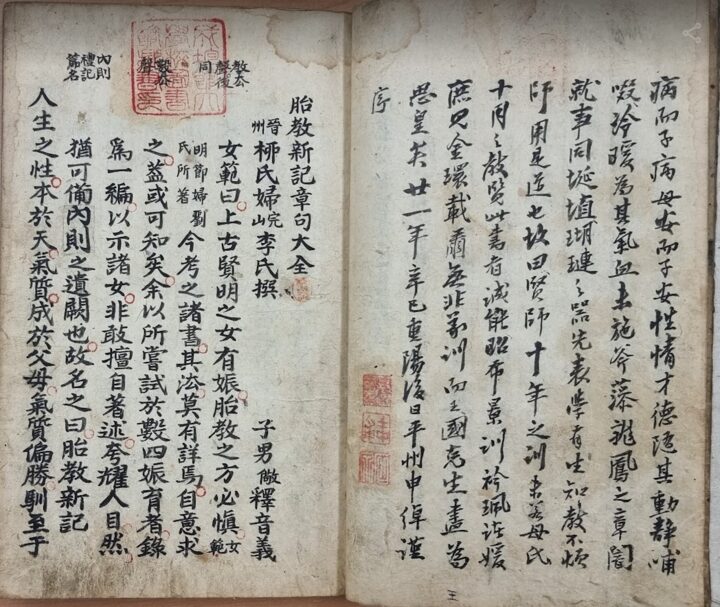 病而子病母安而子安性情才德隨其動靜哺
啜冷暖爲其氣血未施斧藻龍鳳之章闇
就事同埏埴瑚璉之器先表學有生知教不煩
師用是道也故曰賢師十年之訓未若母氏
十月之教覽此書者誠能昭布景訓衿珮諸媛
庶見金環載肅無非義訓而王國克生盡爲
思皇矣廿一年辛巳重陽後日平州申綽謹
序
教去聲後同
內則禮記篇名
胎教新記章句大全
晉州柳氏婦完山李氏撰 子男儆釋音義
女範曰上古賢明之女有娠胎教之方必愼女範
明節婦劉氏所著今考之諸書其法莫有詳焉自意求
之蓋或可知矣余以所嘗試於數四娠育者錄
爲一編以示諸女非敢擅自著述夸耀人目然
猶可備內則之遺闕也故名之曰胎教新記
人生之性本於天氣質成於父母氣質偏勝馴至于